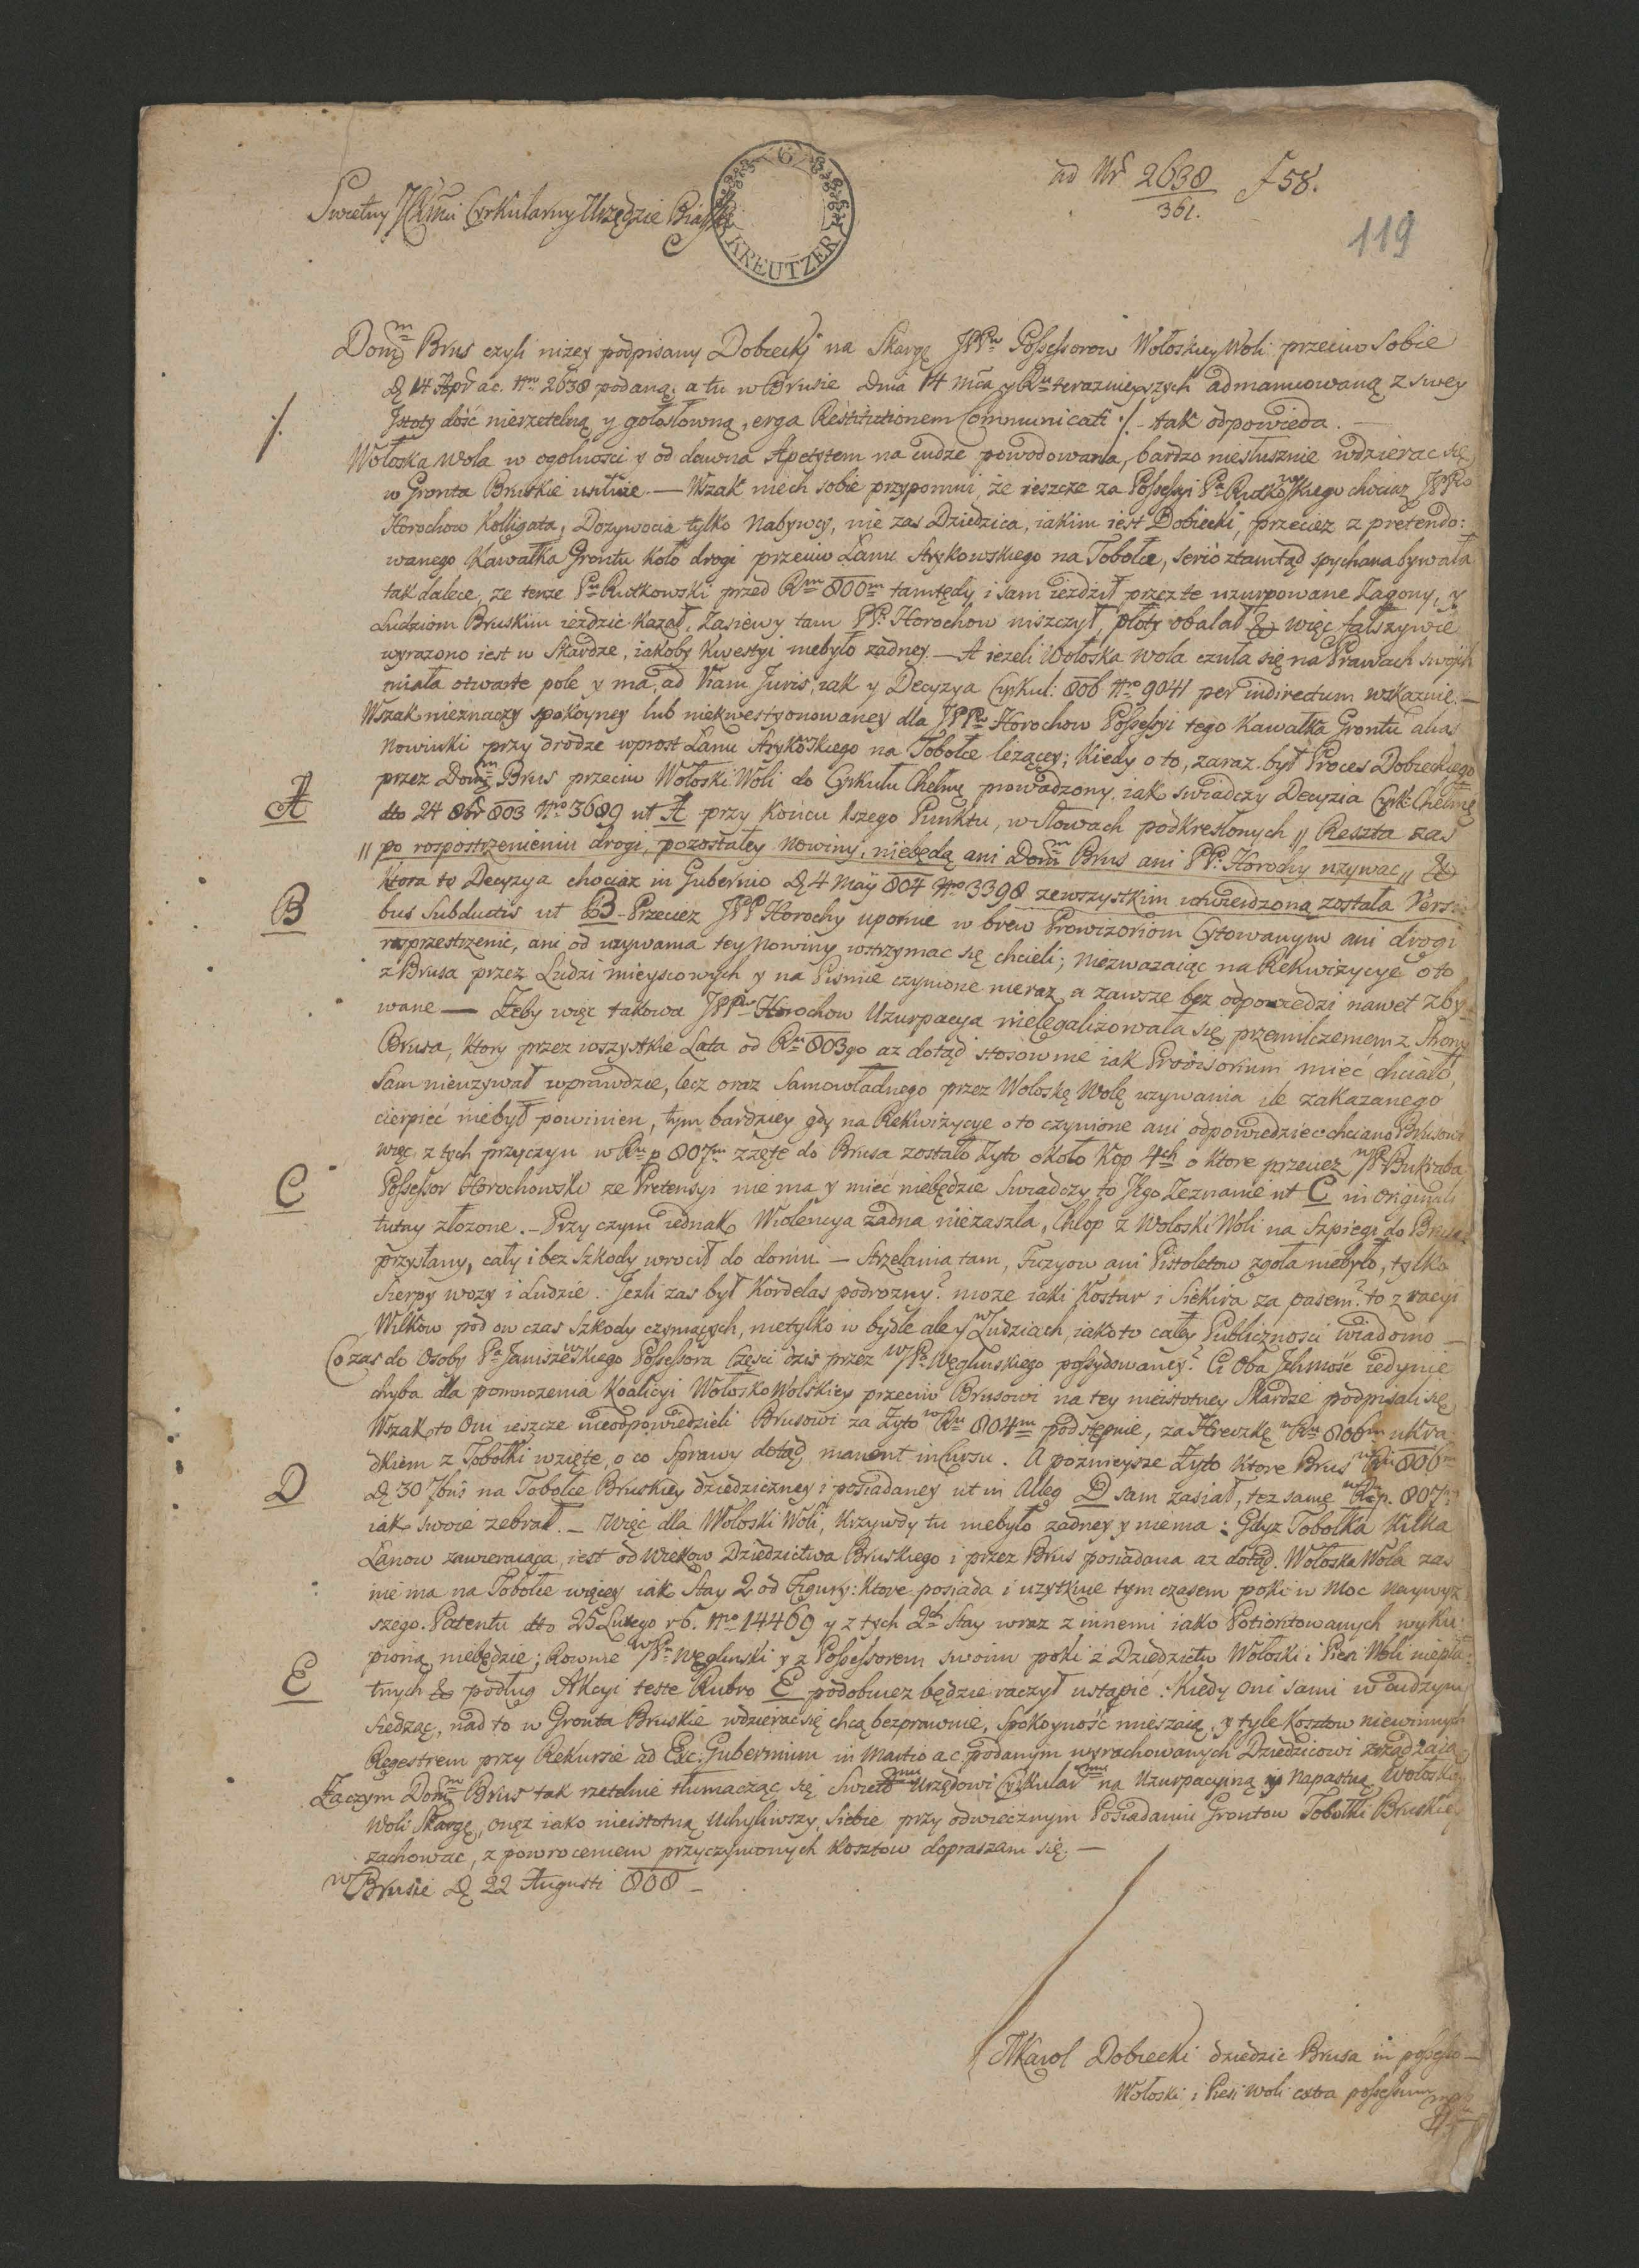 ad Nr 2638/361. F 58.
119
6 KREUTZER
Swietny Cyrkularny Urzędzie
Dom Brus czyli nizey podpisany Dobrecky na Skargę JPPw Possessorow Wołoskiey Woli przeciw Sobie
D 14 Apr ac. Nro 2638 podaną, a tu w Brusie Dnia 14 mca y Ru terazniejszych admanuowaną z swey
./. Istoty dość nierzetelną y gołosłowną, erga Restitutionem Communicati ./. tak odpowieda.
Wołoska Wola w ogolnosci y od dawna Apetytem na cudze powodowana, bardzo niesłusznie wdzierac się
w Gronta Bruskie usiłuie. — Wszak niech sobie przypomni, że ieszcze za Possessyi Pa Rutkowskiego chociaz JPPw
Horochow Kolligata, Dozywocia tylko Nabywcy, nie zas Dziedzica, iakim iest Dobiecki, przeciez z pretendo:
wanego Kawałka Grontu koło drogi przeciw Lanu Stykowskiego na Tobołce, serio ztamtąd spychana bywała
tak dalece, ze tenze Pn Rutkowski przed Rm 800m tamtędy i sam iezdził przez te uzurpowane Zagony, y
Ludziom Bruskim iezdzic kazał, Zasiewy tam PP. Horochow niszczył, płoty obalał & więc fałszywie
wyrazono iest w Skardze, iakoby Kwestyi niebyło zadney. — A iezeli Wołoska Wola czuła się na Prawach swojch
miała otwarte pole y ma, ad Viam Juris, iak y Decyzya Cyrkul: 806 Nro 9041 per indirectum wskazuie. —
Wszak nieznaczy spokoyney lub niekwestyonowaney dla JPPw Horochow Possessyi tego Kawałka Grontu alias
Nowinki przy drodze wprost Lanu Stykowskiego na Tobołce lezącey; kiedy o to, zaraz był Proces Dobieckiego
przez Dom Brus przeciw Wołoski Woli do Cyrkułu Chełm prowadzony, iak swiadczy Decyzia Cyrk: Chełm
A dto 24 8br 803 Nro 3689 ut A przy Koncu 1szego Punktu, w słowach podkreslonych „ Reszta zas
„ po rospostrzenieniu drogi, pozostałey Nowiny, niebędą ani Dom Brus ani PP. Horochy uzywac „ &
Ktora to Decyzya chociaz in Gubernio D 4 May 804 Nro 3398 zewszystkim utwierdzoną została Versi
B bus Subductis ut B - Przeciez JPP Horochy upornie w brew Prowizoriom Cytowanym ani drogi
rosprzestrzenic, ani od uzywania tey Nowiny wstrzymac się chcieli; niezwazaiąc na Rekwizycye o to
z Brusa przez Ludzi mieyscowych y na Pismie czynione nieraz, a zawsze bez odpowiedzi nawet zby
wane — Zeby więc takowa JPPw Horochow Uzurpacya nielegalizowała się, przemilczeniem z Strony
Brusa, Ktory przez wszystkie Lata od Ru 803go az dotąd stosownie iak Prowisorium mieć chciało,
Sam nieuzywał wprawdzie, lecz oraz Samowładnego przez Wołoskę Wolę uzywania ile zakazanego
cierpieć niebył powinien, tym bardziey gdy na Rekwizycye o to czynione ani odpowiedziec chciano Brusowi
więc z tych przyczyn w Ru p 807m zzęte do Brusa zostało Zyto około Kop 4ch o Ktore przeciez WP Bukraba
C Possessor Horochowski ze Pretensyi nie ma y mieć niebędzie Swiadczy to Jego Zeznanie ut C in Originali
tutay złozone. — Przy czym iednak Wiolencya zadna niezaszła, Chłop z Wołoski Woli na Szpiegi do Brusa
przysłany, cały i bez szkody wrocił do domu — Strzelania tam, Fuzyow ani Pistoletow zgoła niebyło, tylko
Sierpy wozy i Ludzie. Jezli zas był Kordelas podrozny? moze iaki Kostur i Siekira za pasem? to z racyi
Wilkow pod ow czas Szkody czyniących, nietylko w bydle ale y w Ludziach, iako to całey Publicznosci wiadomo —
Co zas do Osoby Pa Janiszewskiego Possessora Części dzis przez WPa Węglinskiego possydowaney? Ci Oba Ichmość iedynie
chyba dla pomnozenia Koalicyi Wołosko Wolskiey przeciw Brusowi na tey nieistotney Skardze podpisali się
Wszak to Oni ieszcze nieodpowiedzieli Brusowi za Zyto w Ru 804m podstępnie, za Hreczkę w Ru 806m ukra
dkiem z Tobołki wzięte, o co Sprawy dotąd manent in Cursu. A poznieysze Zyto Ktore Brus w Ru 806m
D D 30 7bris na Tobołce Bruskiey dziedziczney i posiadaney ut in Alleg D sam zasiał, tez same w Ru p. 807m
iak swoie zebrał. — Więc dla Wołoski Woli, Krzywdy tu niebyło zadney y niema: Gdyz Tobołka Kilka
Lanow zawieraiąca, iest od Wiekow Dziedzictwa Bruskiego i przez Brus posiadana az dotąd. Wołoska Wola zas
nie ma na Tobołce więcey iak Stay 2 od Figury: Ktore posiada i uzytkuie tym czasem poki w Moc Naywyz
szego Patentu dto 25 Lutego r 6. Nro 14469 y z tych 2ch Stay wraz z innemi iako Potioritowanych wyku:
pioną niebędzie; Rownie WPn Węglinski y z Possessorem swoim poki z Dziedzictw Wołoski i Piesi Woli niepła:
E tnych & podług Akcyi teste Rubro E podobniez będzie raczył ustąpić: Kiedy Oni sami w cudzym
siedząc, nad to w Gronta Bruskie wdzierac się chcą bezprawnie, Spokoyność mieszaią, y tyle Kosztow niewinnych
Regestrem przy Rekursie ad Exc: Gubernium in Martio ac podanym wyrachowanych Dziedzicowi zrządzaią
Zaczym Dom Brus tak rzetelnie tłumacząc się Swietnmu Urzędowi Cyrkularnmu na Uzurpacyiną y Napastną Wołoskiey
Woli Skargę, onęz iako nieistotną Uchyliwszy, Siebie przy odwiecznym Posiadaniu Grontow Tobołki Bruskiey
zachowac, z powroceniem przyczynionych Kosztow dopraszam się. —
w Brusie D 22 Augusti 808 —
Karol Dobiecki dziedzic Brusa in possessio —
Wołoski i Piesi Woli extra possessionem mpr